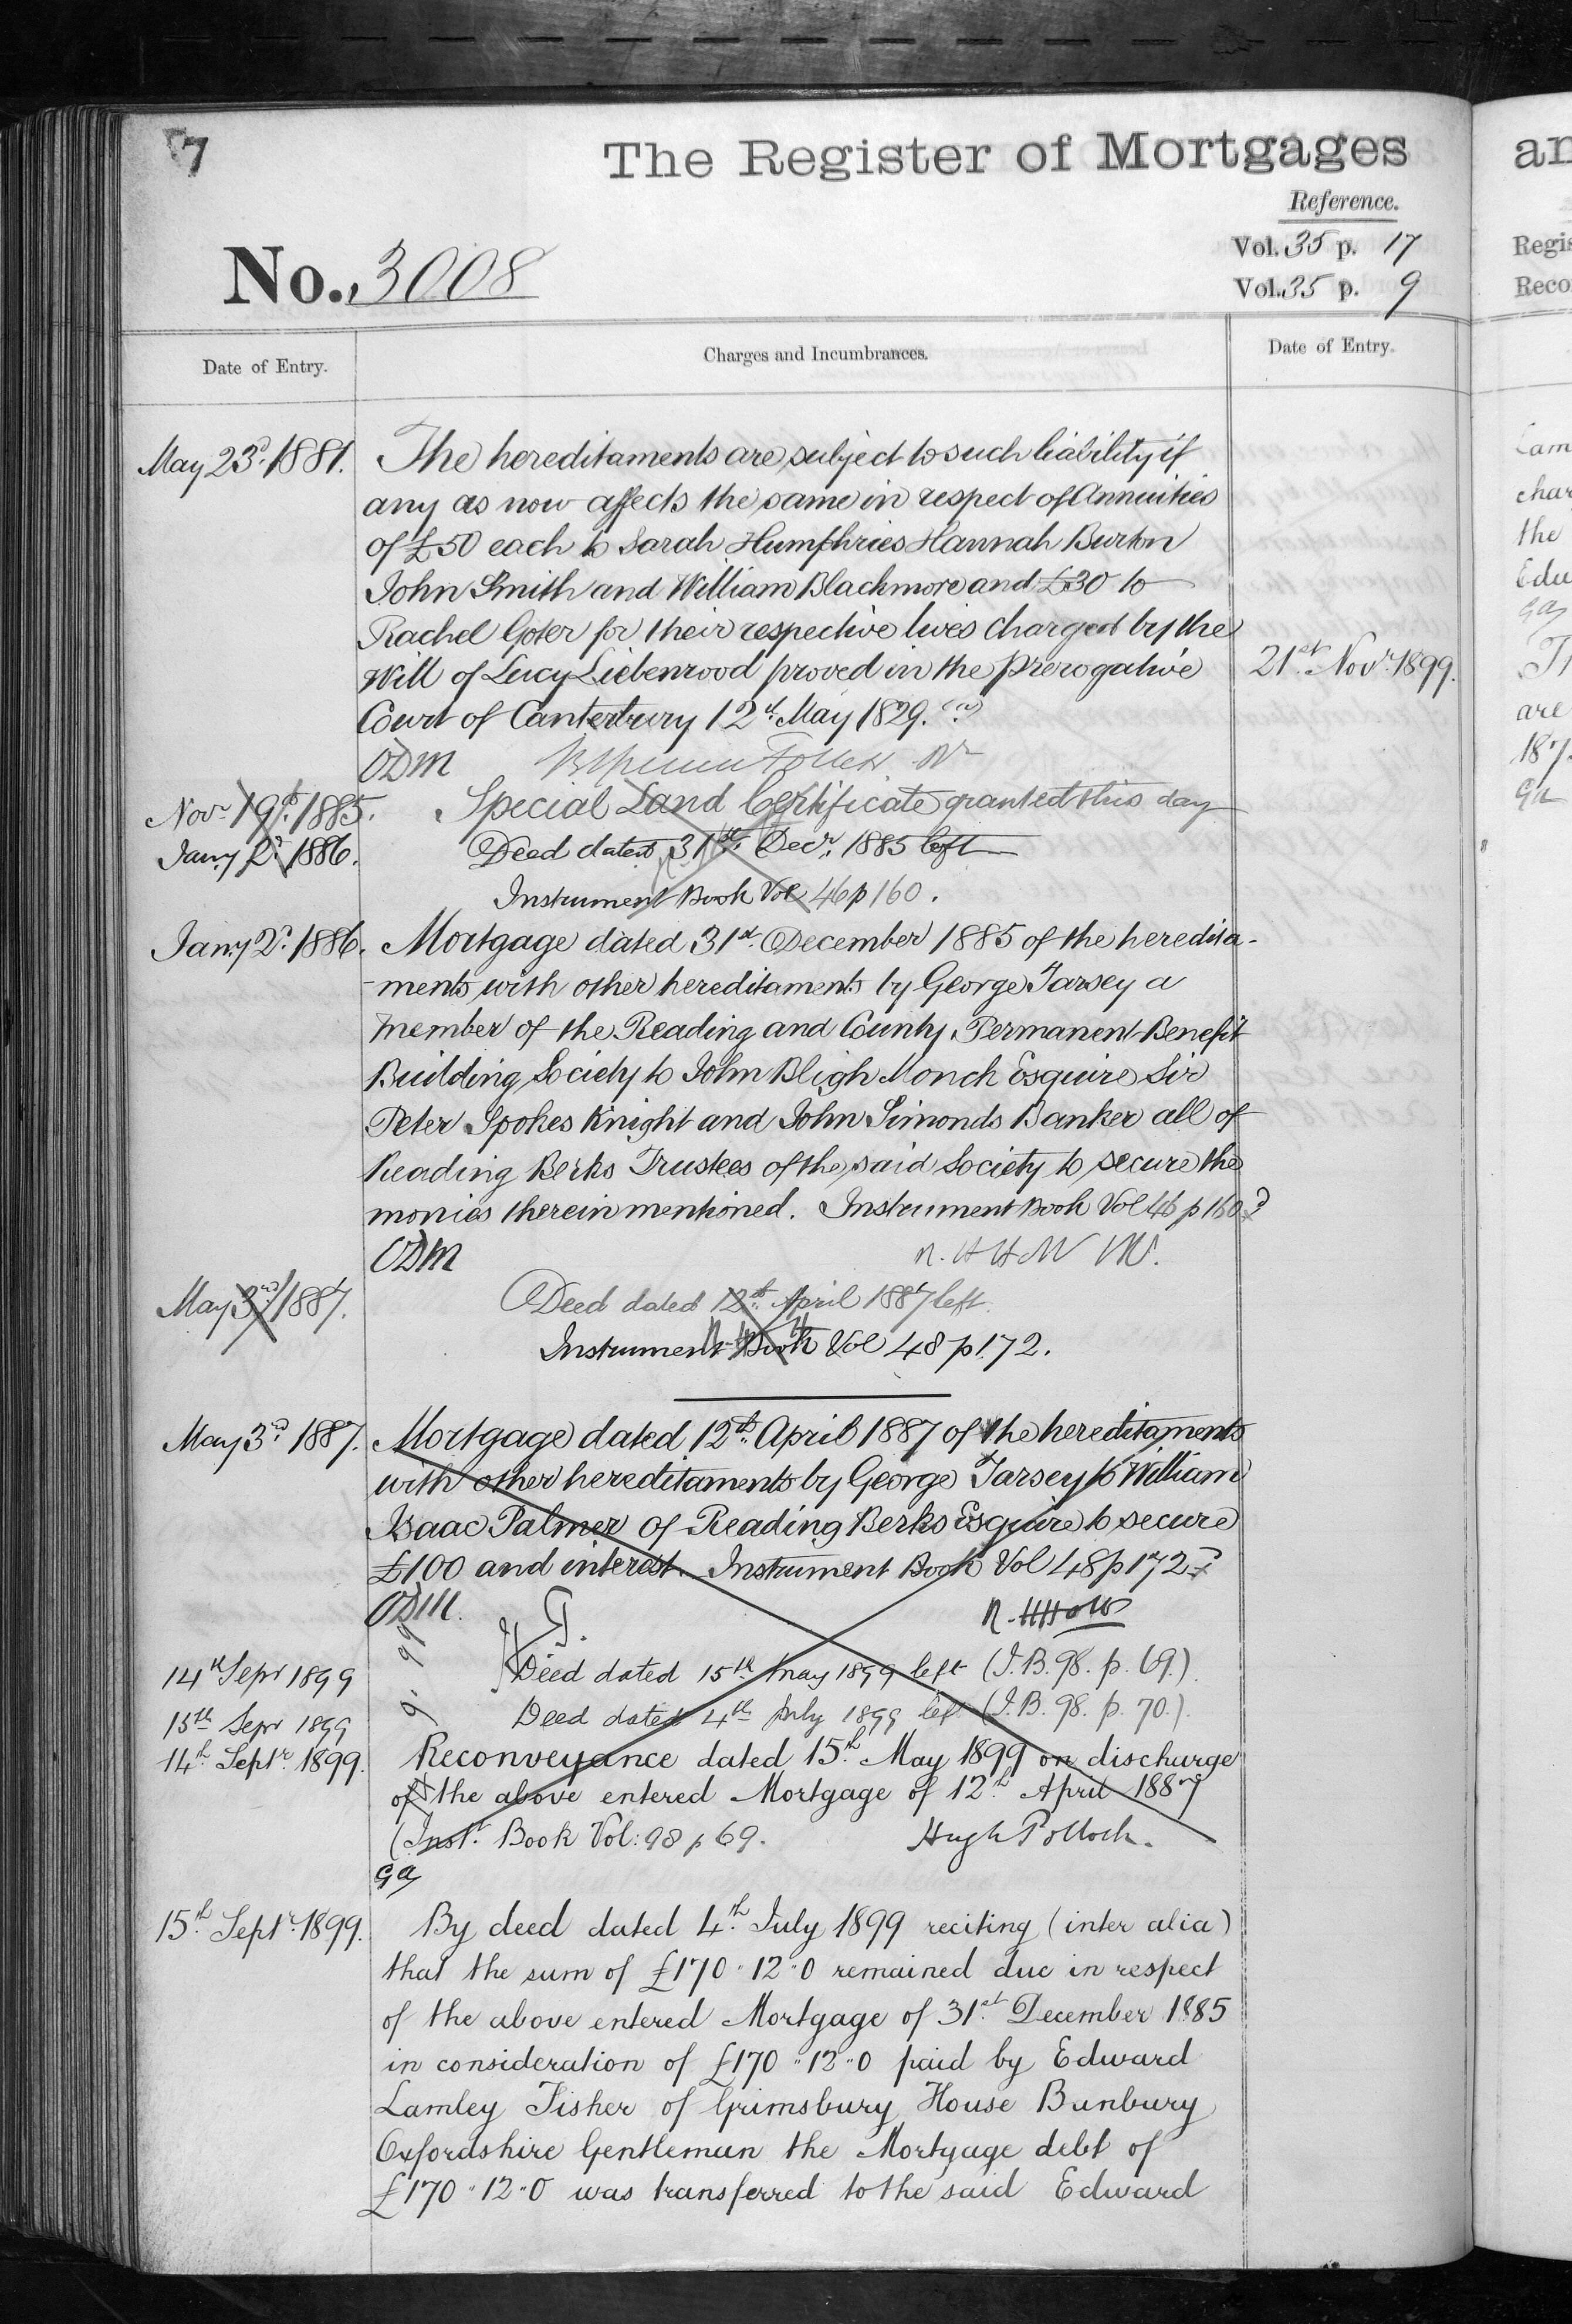 7
The Register of Mortgages
Reference.
Vol. 35 p. 17
No. 3008
Vol. 35 p. 9
Date of Entry.
Charges and Incumbrances.
Date of Entry.
May 23d. 1881.
The hereditaments are subject to such liability if
any as now affects the same in respect of Annuities
of £50 each to Sarah Humphries Hannah Burton
John Smith and William Blackmore and £30 to
Rachel Goter for their respective lives charged by the
Will of Lucy Liebenrood proved in the Prerogative
Court of Canterbury 12th May 1829.
ODM
Novr 19th. 1885.
Special Land Certificate granted this day
Jany 2d. 1886.
Deed dated 31st. Decr. 1885 left
Instrument Book Vol 46 p 160.
Jany 2d. 1886.
Mortgage dated 31st. December 1885 of the heredita-
-ments with other hereditaments by George Tarsey a
member of the Reading and County Permanent Benefit
Building Society to John Bligh Monck Esquire Sir
Peter Spokes Knight and John Simonds Banker all of
Reading Berks Trustees of the said Society to secure the
monies therein mentioned. Instrument Book Vol 46 p 160
ODM
May 3rd. 1887.
Deed dated 12th. April 1887 left.
Instrument Book Vol 48 p 172.
May 3d. 1887.
Mortgage dated 12th. April 1887 of the hereditaments
with other hereditaments by George Tarsey to William
Isaac Palmer of Reading Berks Esquire to secure
£100 and interest. Instrument Book Vol 48 p 172
ODM.
14th Sepr 1899
Deed dated 15th May 1899 left (I.B. 98. p. 69.)
15th Sepr 1899
Deed dated 4th July 1899 left (I.B. 98. p. 70.)
14th. Septr. 1899.
Reconveyance dated 15th. May 1899 on discharge
of the above entered Mortgage of 12th. April 1887
(Inst. Book Vol: 98 p 69.
Hugh Pollock.
GA
15th. Septr. 1899.
By deed dated 4th. July 1899 reciting (inter alia)
that the sum of £170 " 12 " 0 remained due in respect
of the above entered Mortgage of 31st. December 1885
in consideration of £170 " 12 " 0 paid by Edward
Lamley Fisher of Grimsbury House Banbury
Oxfordshire Gentleman the Mortgage debt of
£170 " 12 " 0 was transferred to the said Edward
21st. Novr. 1899.